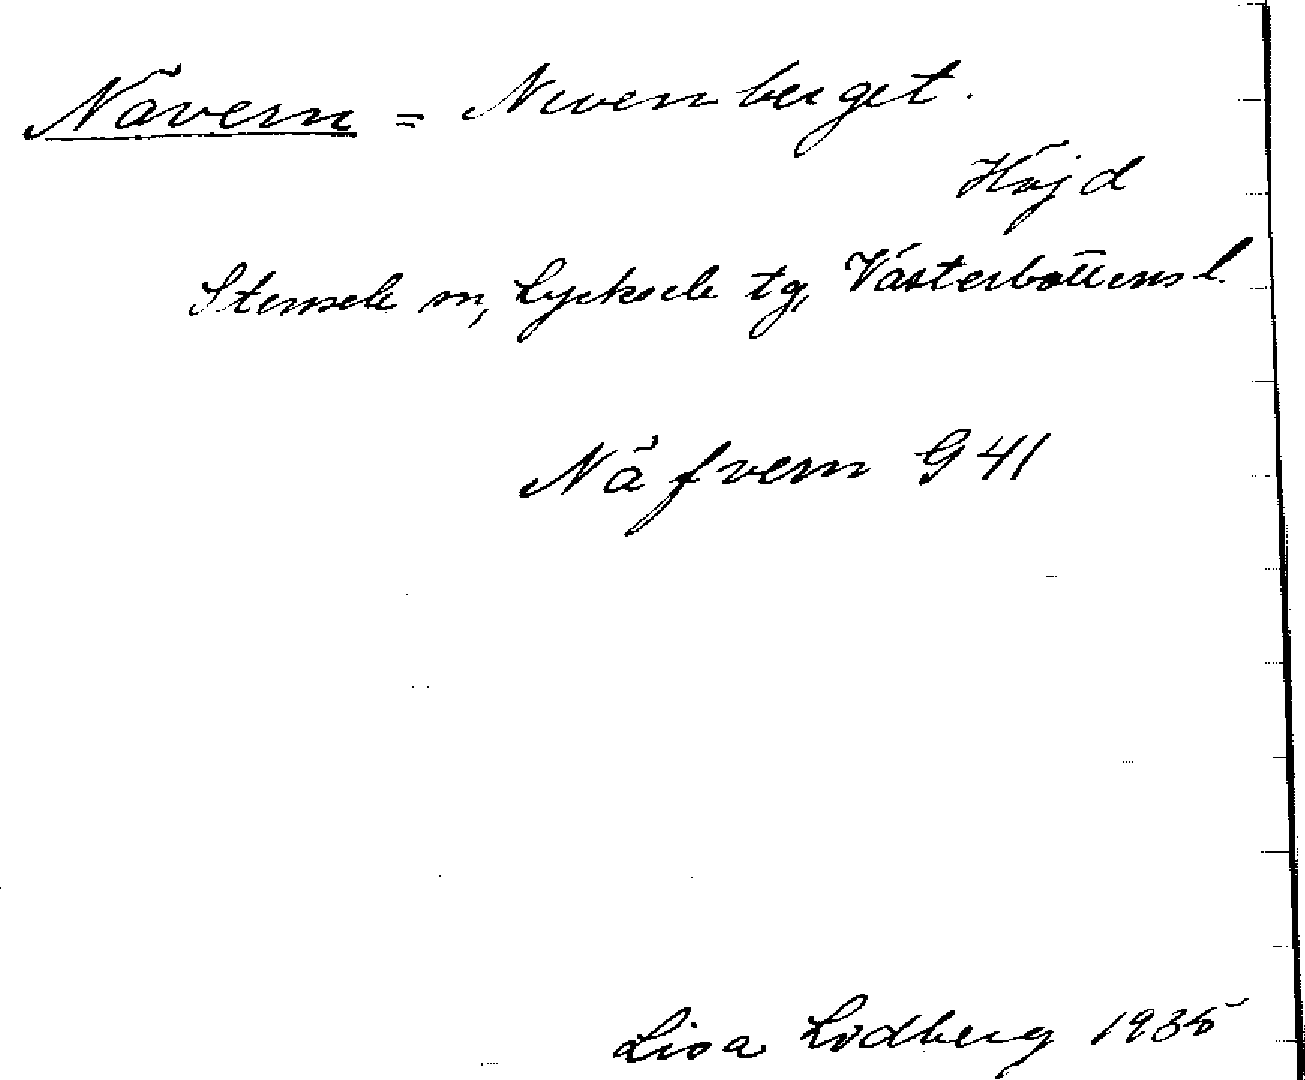 Nävern = Nevernberget.
Höjd
Stensele sn, Lycksele tg, Västerbottens l.
Näfvern G 41
Lisa Lidberg 1935